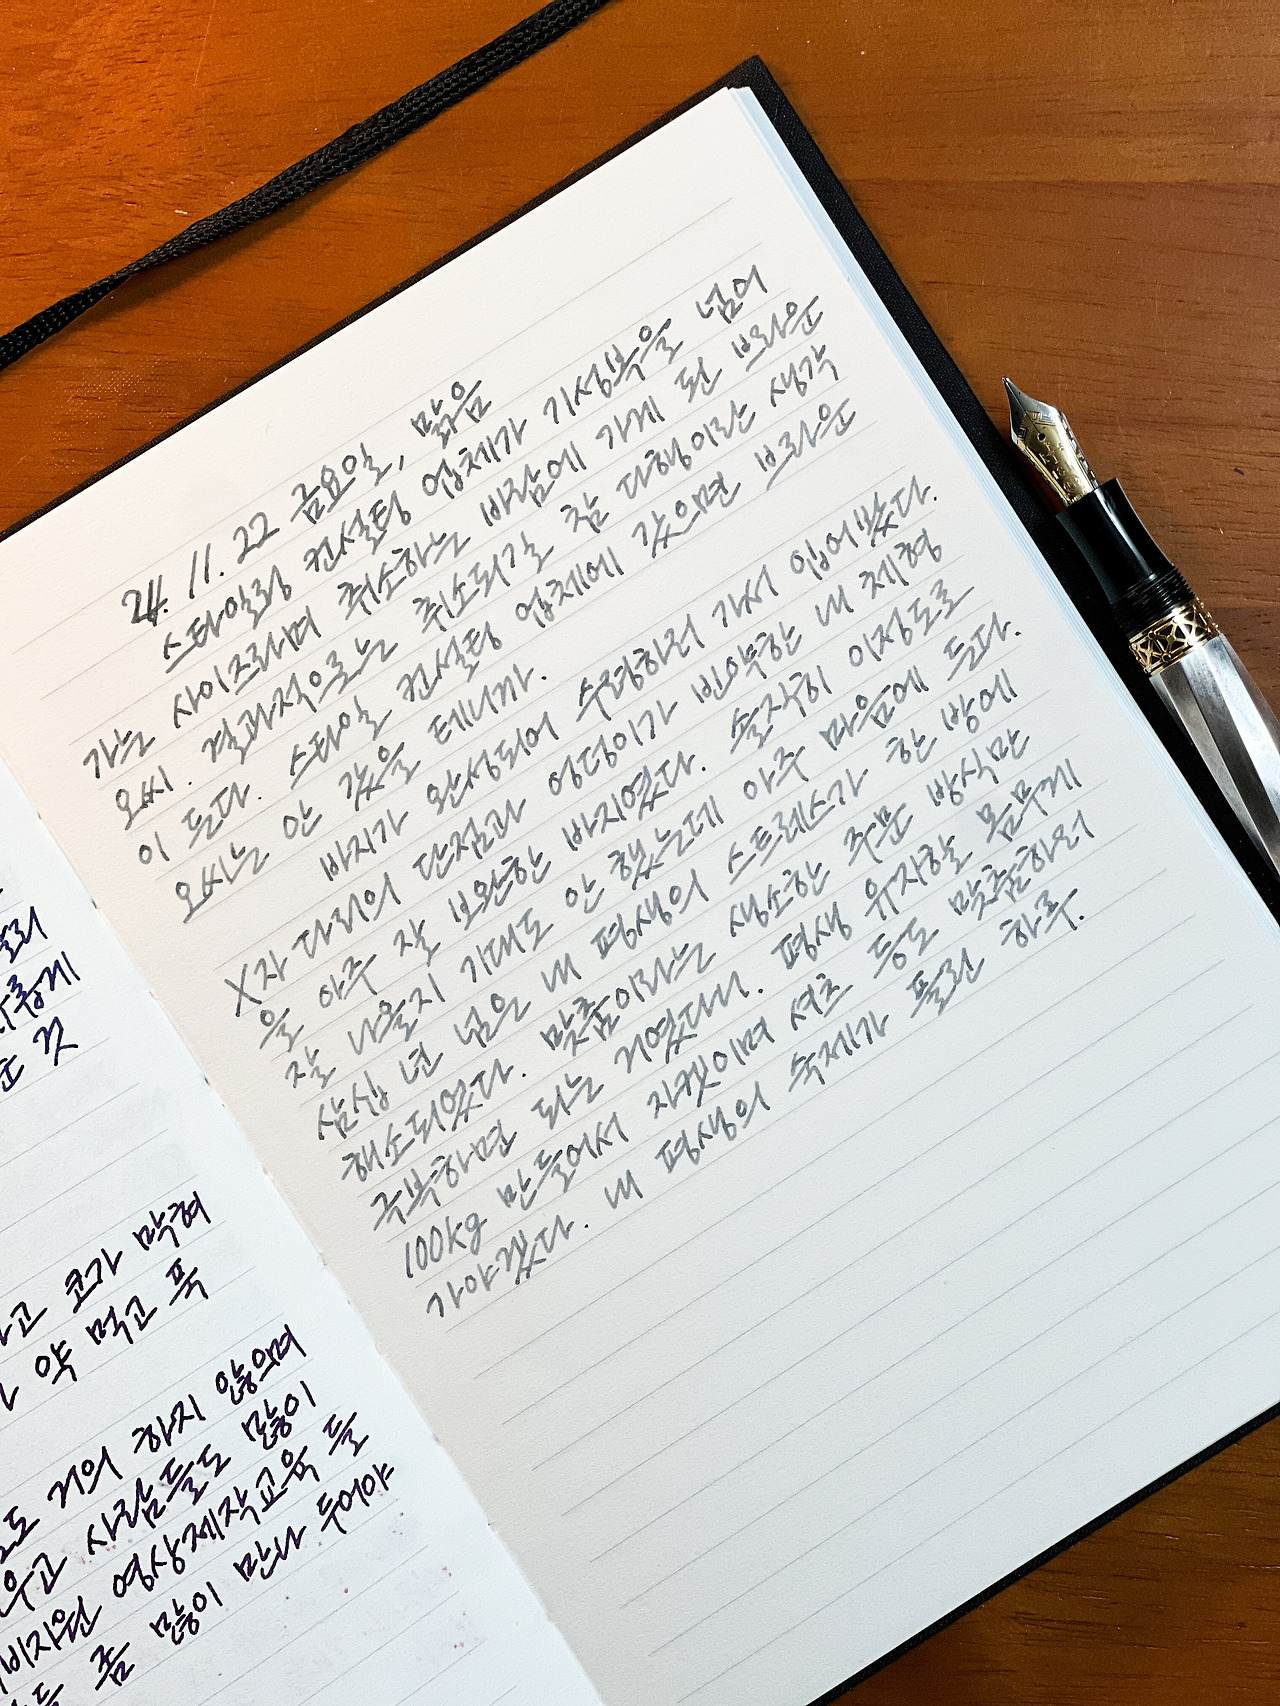 24. 11. 22 금요일, 맑음
스타일링 컨설팅 업체가 기성복을 넘어
가는 사이즈라며 취소하는 바람에 가게 된 브라운
오씨. 결과적으로는 취소되길 참 다행이라는 생각
이 든다. 스타일 컨설팅 업체에 갔으면 브라운
오씨는 안 갔을 테니까.
바지가 완성되어 수령하러 가서 입어봤다.
X자 다리의 단점과 엉덩이가 빈약하는 내 체형
을 아주 잘 보완한 바지였다. 솔직히 이정도로
잘 나올지 기대도 안 했는데 아주 마음에 든다.
삼십 년 넘은 내 평생의 스트레스가 한 방에
해소되었다. 맞춤이라는 생소한 주문 방식만
극복하면 되는 거였다니. 평생 유지할 몸무게
100kg 만들어서 자켓이며 셔츠 등도 맞춤하러
가야겠다. 내 평생의 숙제가 풀린 하루.
고 코가 막혀
약 먹고 푹
도 거의 하지 않으며
우고 사람들도 많이
비지원 영상제작교육 들
좀 많이 만나 두어야